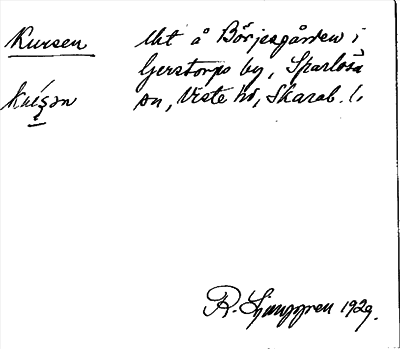 Kursen Utt å Börjesgården i
Gerstorps by, Sparlösa
sn, Viste hd, Skarab. l.
R. Ljunggren 1929.